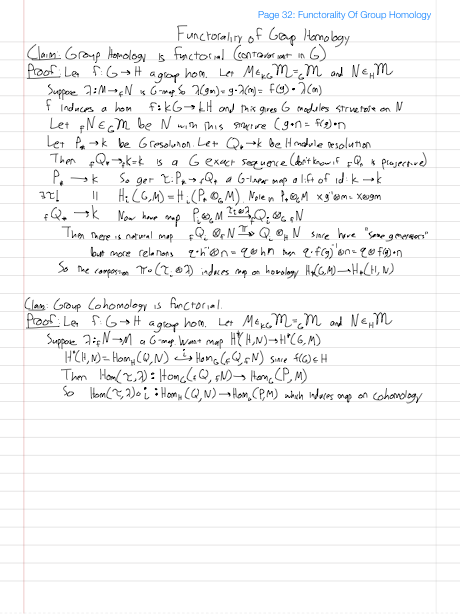 Page 32: Functorality Of Group Homology
Functorality of Group Homology
Claim: Group Homology is functorial (contravariant in G)
Proof: Let f: G → H a group hom. Let M ∈ kG M = G M and N ∈ H M
Suppose λ: M → fN is G-map so λ(gm) = g·λ(m) = f(g)·λ(m)
f induces a hom f: kG → kH and this gives G modules structure on N
Let fN ∈ G M be N with this structure (g·n = f(g)·n)
Let P* → k be G resolution. Let Q* → k be H module resolution
Then fQ* → fk = k is a G exact sequence (don't know if fQi is projective)
P* → k So get τ: P* → fQ* a G-linear map a lift of id: k → k
∃τ↓ || Hi(G,M) = Hi(P* ⊗G M) Note in P* ⊗G M xg⁻¹⊗m = x⊗gm
fQ* → k Now have map Pi ⊗G M τi⊗λ→ fQi ⊗G fN
Then there is natural map fQi ⊗G fN π→ Qi ⊗H N since have "same generators"
but more relations q·h⁻¹⊗n = q⊗hn then q·f(g)⁻¹⊗n = q⊗f(g)·n
So the composition π∘(τi ⊗ λ) induces map on homology H*(G,M) → H*(H,N)
Claim: Group Cohomology is functorial.
Proof: Let f: G → H a group hom. Let M ∈ kG M = G M and N ∈ H M
Suppose λ: fN → M a G-map. Want map H*(H,N) → H*(G,M)
H*(H,N) = HomH(Q,N) i↪ HomG(fQ, fN) since f(G) ∈ H
Then Hom(τ,λ): HomG(fQ, fN) → HomG(P, M)
So Hom(τ,λ)∘i: HomH(Q,N) → HomG(P,M) which induces map on cohomology